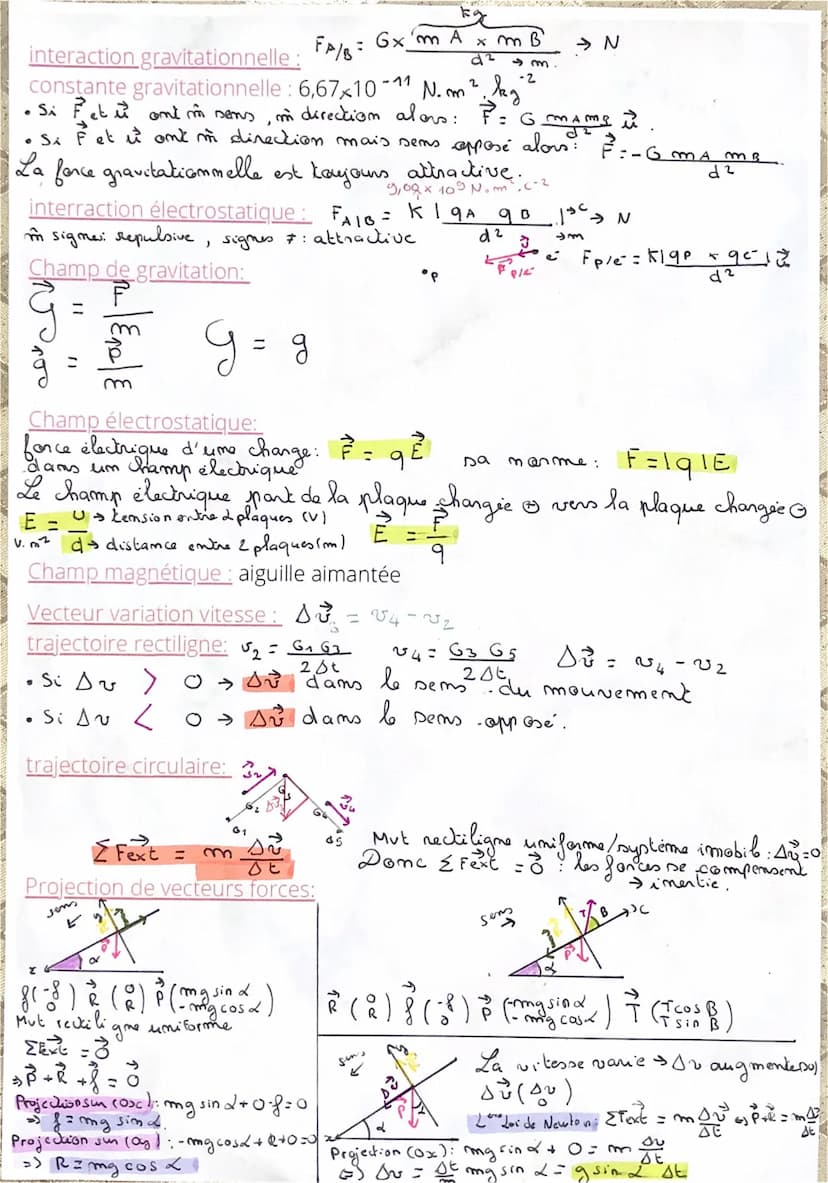 kg
interaction gravitationnelle : F A/B = G x m A x m B / d² → m → N
constante gravitationnelle : 6,67x10⁻¹¹ N.m².kg⁻²
• Si F⃗ et u⃗ ont m̂ sens, m̂ direction alors : F⃗ = G mA mB / d² u⃗.
• Si F⃗ et u⃗ ont m̂ direction mais sens opposé alors : F⃗ = - G mA mB / d²
La force gravitationnelle est toujours attractive.
interraction électrostatique : F A/B = K | qA qB | → C / d² → m → N
m̂ signe : repulsive, signes ≠ : attractive
•p e⁻ F p/e⁻ = K | qp x qe⁻ | / d² u⃗
Champ de gravitation:
G⃗ = F⃗ / m
g⃗ = P⃗ / m
G = g
Champ électrostatique:
force électrique d'une charge : F⃗ = qE⃗ sa norme : F = |q|E
dans un champ électrique
Le champ électrique part de la plaque chargée ⊕ vers la plaque chargée ⊖
E = U → tension entre 2 plaques (V)
d → distance entre 2 plaques (m) E⃗ = F⃗ / q
Champ magnétique : aiguille aimantée
Vecteur variation vitesse : Δv⃗₃ = v4 - v2
trajectoire rectiligne: v2 = G1 G3 / 2Δt v4 = G3 G5 / 2Δt Δv⃗ = v4 - v2
• Si Δv > 0 → Δv⃗ dans le sens du mouvement
• Si Δv < 0 → Δv⃗ dans le sens opposé.
trajectoire circulaire:
G1 G2 G3 G4 G5
ΣF⃗ext = m Δv⃗ / Δt
Mvt rectiligne uniforme/système imobil : Δv⃗=0
Donc ΣF⃗ext = 0⃗ : les forces se compensent
→ inertie.
Projection de vecteurs forces:
sens
x α
f(-f 0) R⃗(0 R) P⃗(mg sin α -mg cos α)
Mvt rectiligne uniforme
ΣF⃗ext = 0⃗
⇒ P⃗ + R⃗ + f⃗ = 0⃗
Projection sur (Ox) : mg sin α + 0 - f = 0
⇒ f = mg sin α
Projection sur (Oy) : -mg cos α + R + 0 = 0
⇒ R = mg cos α
sens
T β x
α P⃗
R⃗(0 R) f⃗(-f 0) P⃗(-mg sin α -mg cos α) T⃗(T cos β T sin β)
sens
x α
La vitesse varie → Δv augmente
Δv⃗(Δv 0)
2ème Loi de Newton : ΣF⃗ext = m Δv⃗ / Δt ⇔ P⃗+R⃗ = m Δv⃗ / Δt
Projection (Ox) : mg sin α + 0 = m Δv / Δt
⇔ Δv = Δt / m mg sin α = g sin α Δt